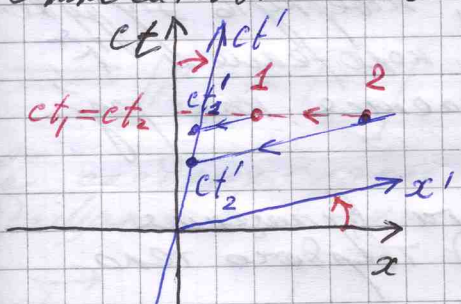 ct ct'
1 2
ct₁' 
ct₁=ct₂
ct₂'
x'
x